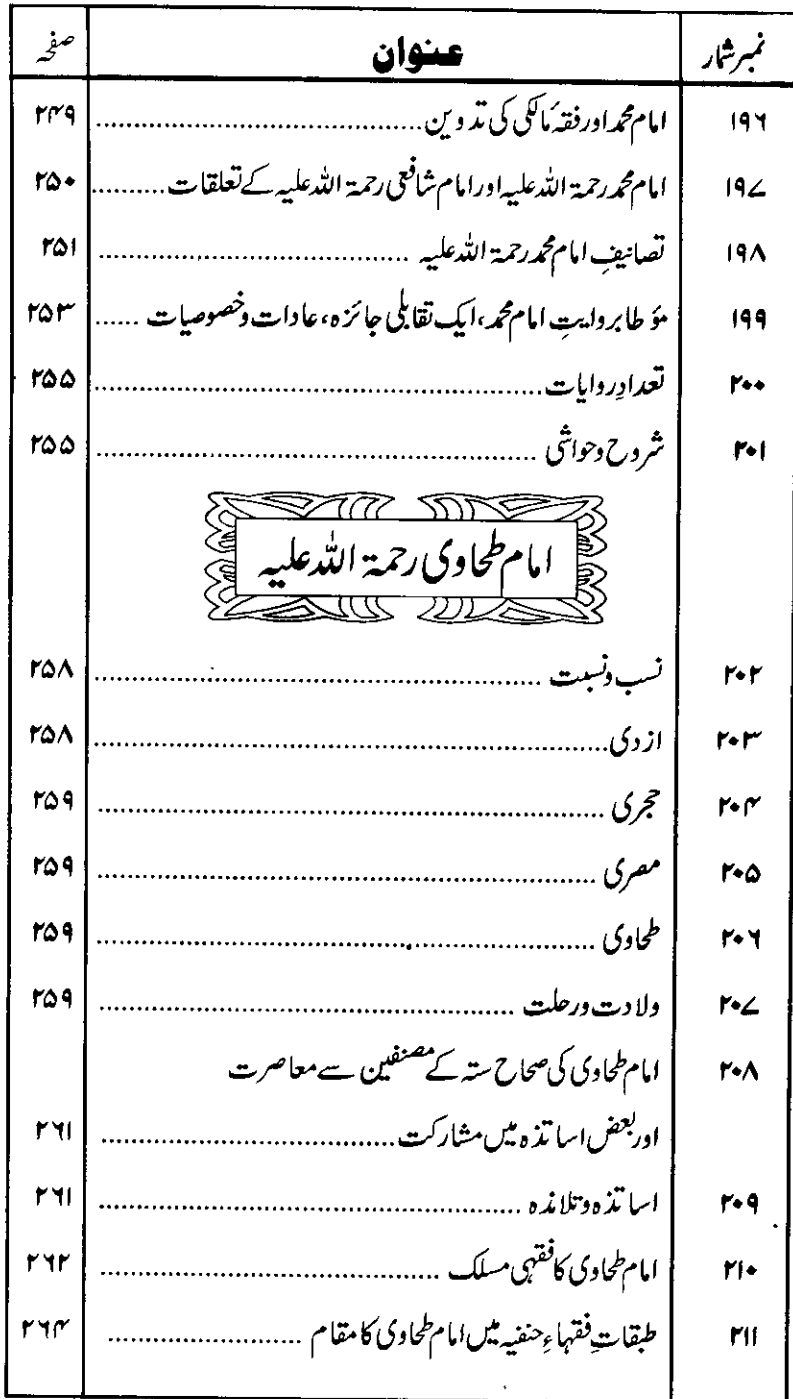 نمبرشمار عنوان صفحہ
۱۹۶ امام محمد اور فقہ مالکی کی تدوین........................................ ۲۴۹
۱۹۷ امام محمد رحمۃ اللہ علیہ اور امام شافعی رحمۃ اللہ علیہ کے تعلقات.......... ۲۵۰
۱۹۸ تصانیفِ امام محمد رحمۃ اللہ علیہ ........................................ ۲۵۱
۱۹۹ مؤطا بروایتِ امام محمد، ایک تقابلی جائزہ، عادات وخصوصیات ...... ۲۵۳
۲۰۰ تعدادِ روایات........................................ ۲۵۵
۲۰۱ شروح وحواشی ........................................ ۲۵۵
امام طحاوی رحمۃ اللہ علیہ
۲۰۲ نسب ونسبت ........................................ ۲۵۸
۲۰۳ ازدی........................................ ۲۵۸
۲۰۴ حجری ........................................ ۲۵۹
۲۰۵ مصری ........................................ ۲۵۹
۲۰۶ طحاوی ........................................ ۲۵۹
۲۰۷ ولادت ورحلت ........................................ ۲۵۹
۲۰۸ امام طحاوی کی صحاح ستہ کے مصنفین سے معاصرت
اور بعض اساتذہ میں مشارکت.............................. ۲۶۱
۲۰۹ اساتذہ وتلامذہ ........................................ ۲۶۱
۲۱۰ امام طحاوی کا فقہی مسلک .............................. ۲۶۲
۲۱۱ طبقاتِ فقہاءِ حنفیہ میں امام طحاوی کا مقام .................... ۲۶۴